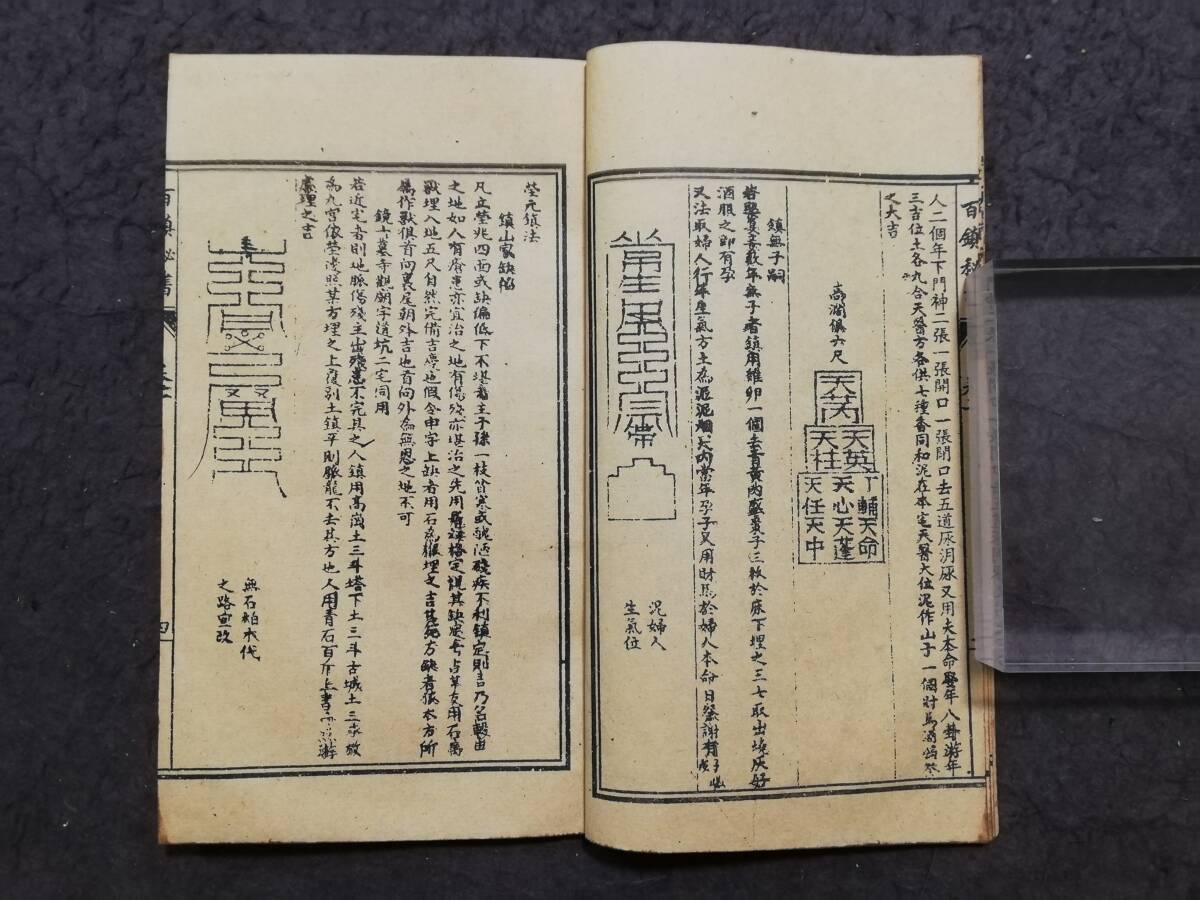 百鎮秘
人二個年下門神二張一張開口一張閉口去五道尿泂尿又用夫本命娶年八卦游年
三吉位土各九合天醫方各供七種香同和泥在本宅天醫大位泥作山子一個財馬酒
之大吉
高濶俱六尺
天芮
天英
天柱
輔天命
天心天蓬
天任天中
鎮無子嗣
若娶妻妾數年無子者鎮用雞卵一個去青黃內盛棗子三枚於床下埋之三七取出燒灰好
酒服之即有孕
又法取婦人行年生氣方土為泥泥竈大內當年孕子又用財馬於婦人本命日祭謝有子
泥婦人
生氣位
塋元鎮法
鎮山家缺陷
凡立塋兆四面或缺偏低下不堪者主子孫一枝貧寒或醜陋殘疾不利鎮定則吉乃名
之地如人有唇患亦宜治之地有傷殘亦堪治之先用羅經格定視其缺
獸埋入地五尺自然完備吉慶也假令申字上缺者用石為猴埋之吉其死方缺者俱本方所
屬作獸俱首向裏尾朝外吉也首向外為無恩之地不可
鏡十墓寺觀廟宇道坑二宅同用
若近宅者則地脈傷殘主出殘患不完具之人鎮用高崗土三斗塔下土三斗古城土三
為九宮依塋淺照某方埋之上覆別土鎮平則脈龍不去其方也人用青石百斤上書
處埋之吉
無石柏木代
之路更改
百鎮秘書
四